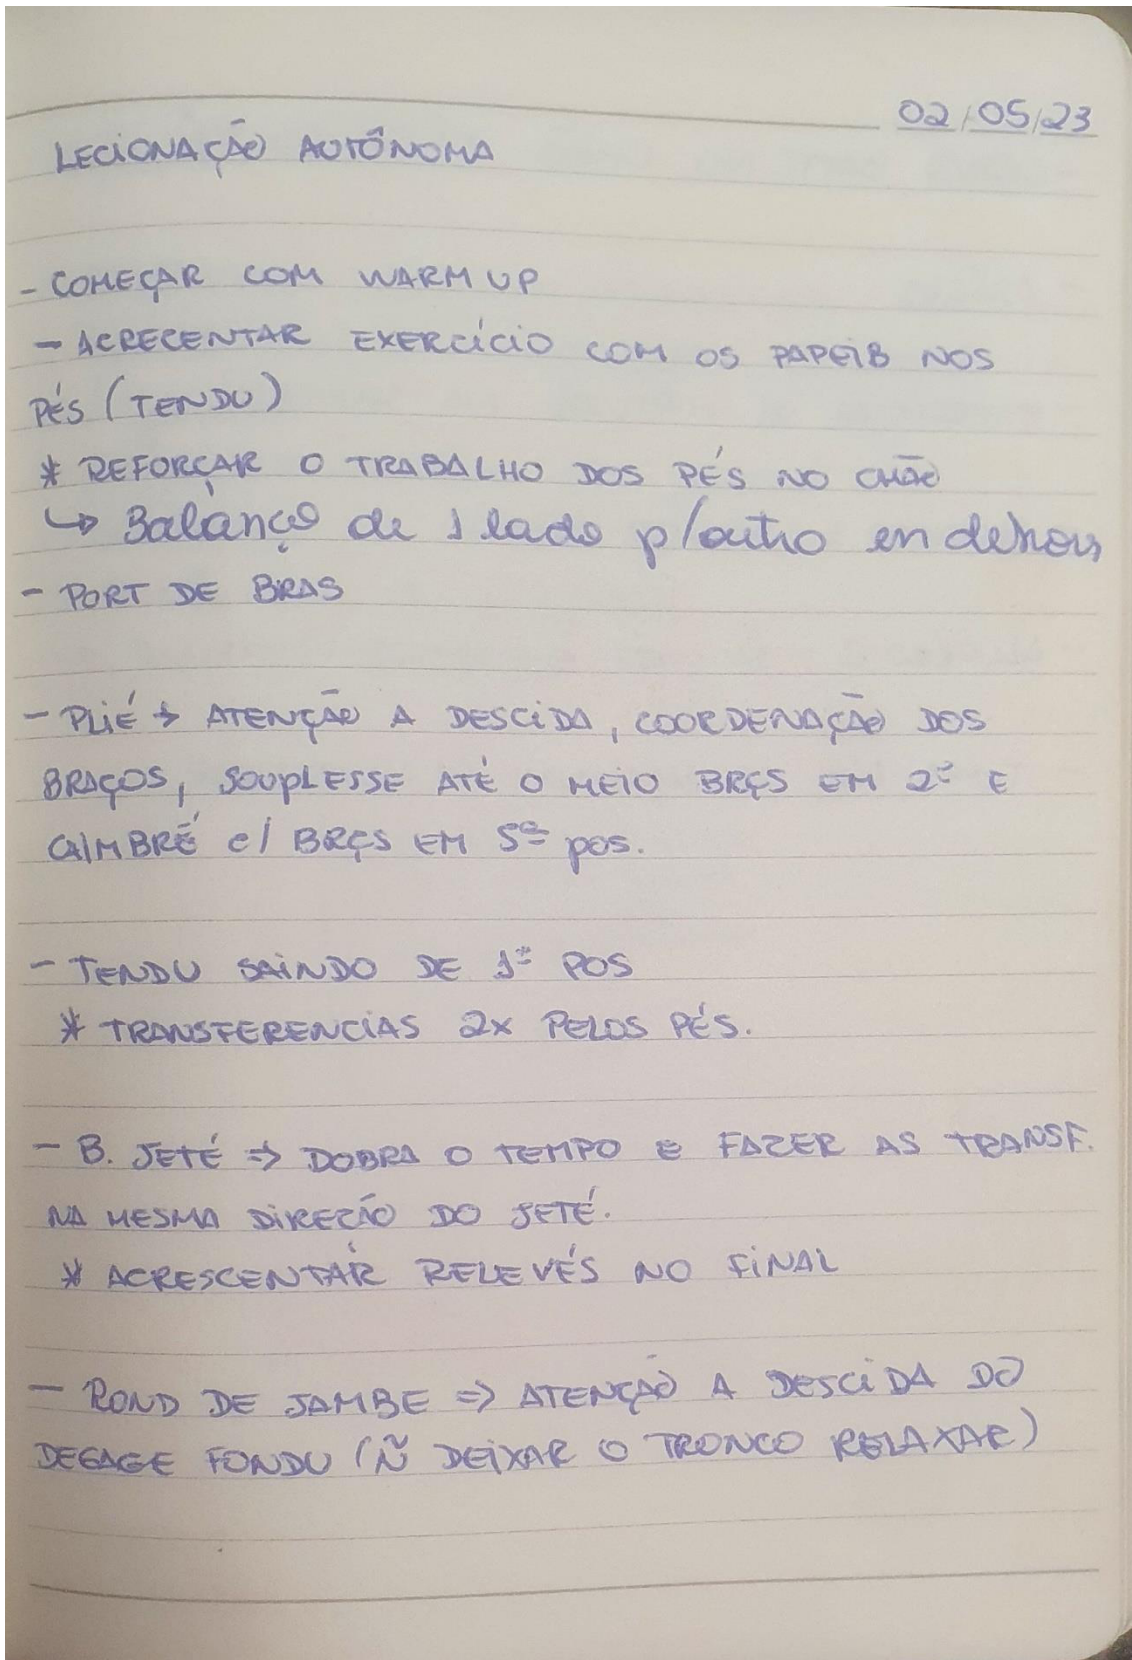 02/05/23
LECIONAÇÃO AUTÔNOMA
- COMEÇAR COM WARM UP
- ACRECENTAR EXERCÍCIO COM OS PAPEIS NOS
PÉS (TENDU)
* REFORÇAR O TRABALHO DOS PÉS NO CHÃO
↳ Balanço de 1 lado p/outro en dehors
- PORT DE BRAS
- PLIÉ → ATENÇÃO A DESCIDA, COORDENAÇÃO DOS
BRAÇOS, SOUPLESSE ATÉ O MEIO BRÇS EM 2ª E
CAMBRÉ c/ BRÇS EM 5ª pos.
- TENDU SAINDO DE 1ª POS
* TRANSFERENCIAS 2X PELOS PÉS.
- B. JETÉ => DOBRA O TEMPO E FAZER AS TRANSF.
NA MESMA DIREÇÃO DO JETÉ.
* ACRESCENTAR RELEVÉS NO FINAL
- ROND DE JAMBE => ATENÇÃO A DESCIDA DO
DEGAGE FONDU (Ñ DEIXAR O TRONCO RELAXAR)